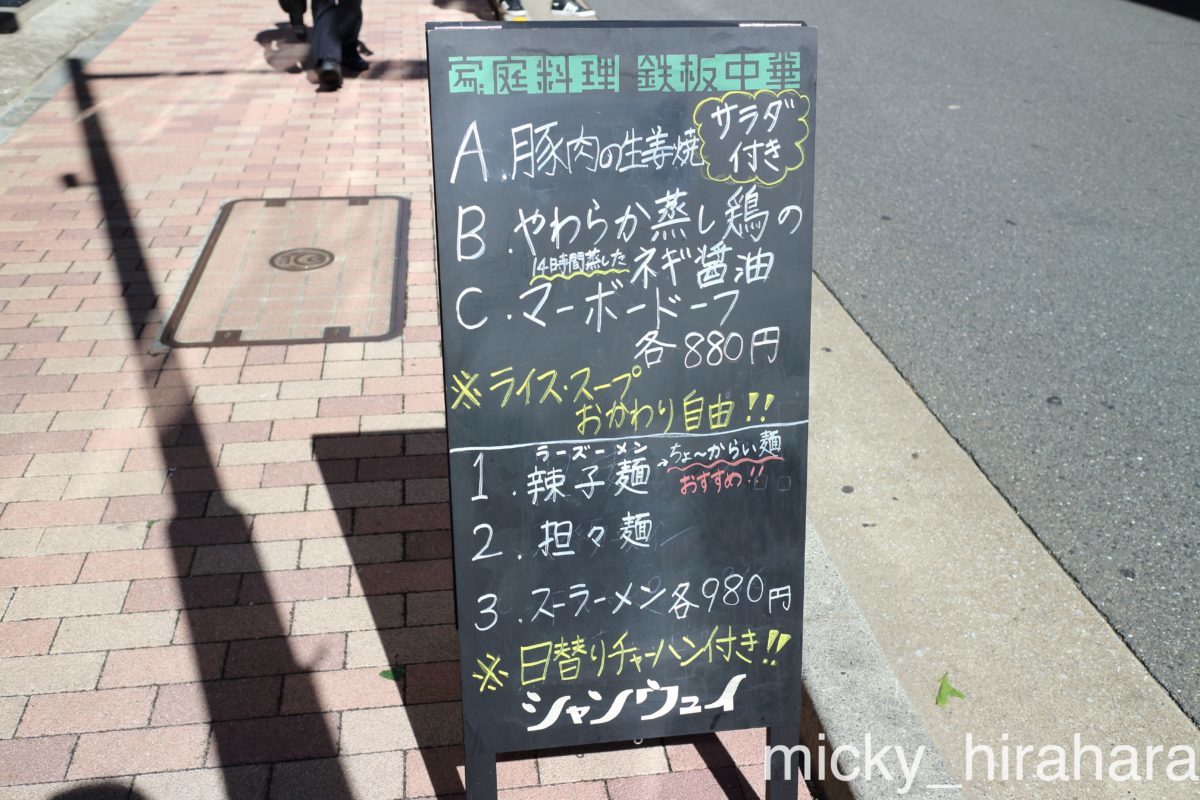 家庭料理 鉄板中華
A.豚肉の生姜焼
サラダ
付き
B.やわらか蒸し鶏の
14時間蒸した ネギ醤油
C.マーボードーフ
各880円
※ライス・スープ
おかわり自由!!
ラーズーメン
1.辣子麺 →ちょ〜からい麺
おすすめ!!
2.担々麺
3.スーラーメン各980円
※日替りチャーハン付き!!
シャンウェイ
micky_hirahara